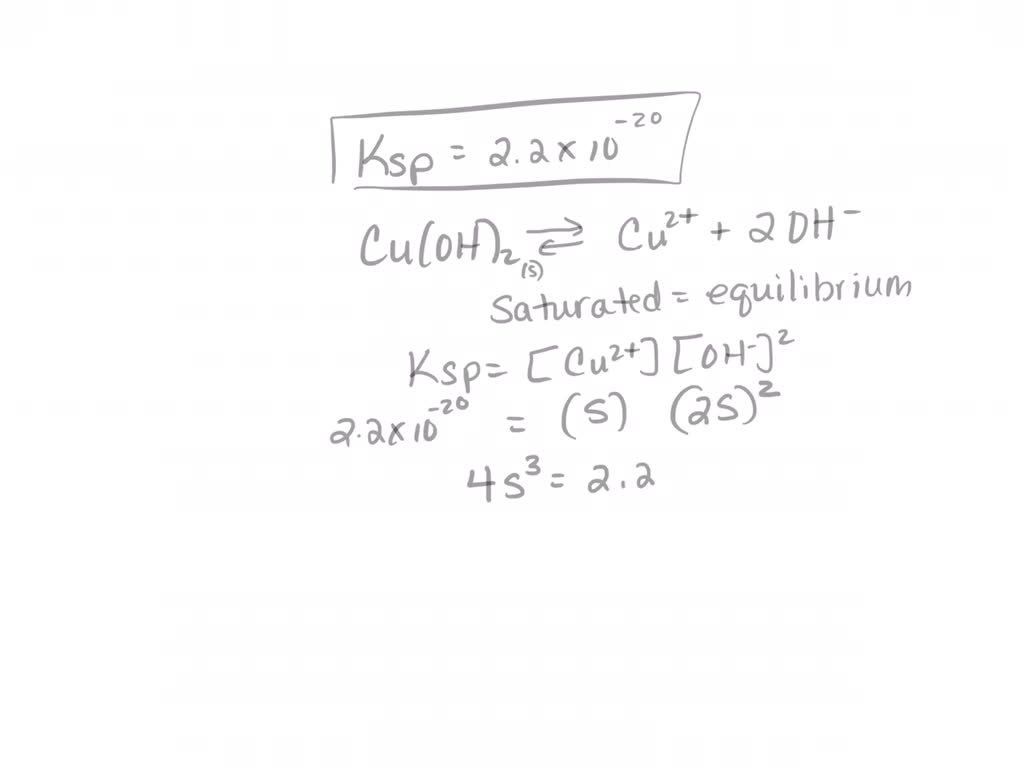 Ksp = 2.2 × 10⁻²⁰
Cu(OH)₂₍s₎ ⇌ Cu²⁺ + 2OH⁻
Saturated = equilibrium
Ksp = [Cu²⁺] [OH⁻]²
2.2×10⁻²⁰ = (S) (2S)²
4S³ = 2.2